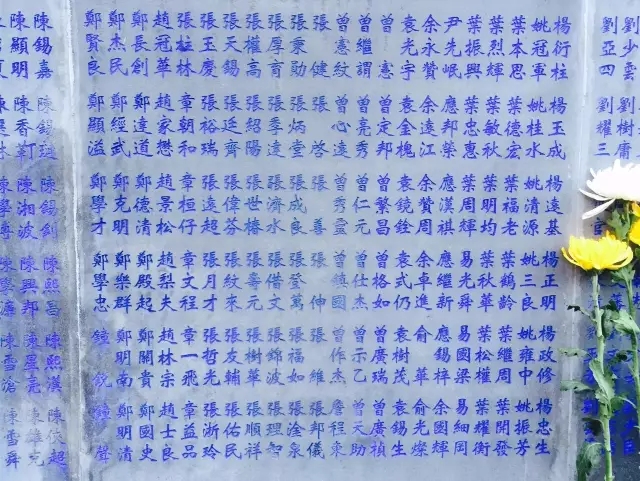 劉亞四 劉耀三
楊衍柱 楊玉成 楊遠基 楊正明 楊政修 楊忠生
姚冠軍 姚桂水 姚清源 姚三良 姚雍中 姚振芳
葉本思 葉德宏 葉福老 葉鶴齡 葉繼周 葉開發
葉烈輝 葉敏秋 葉明均 葉秋華 葉松權 葉耀衡
葉振興 葉忠惠 葉周輝 易光舜 易國梁
尹先岷 應邦榮 應周祺 余繼新 應錫梓 余國輝
余永贊 余遠江 余贊漢 余卓進 俞華 余光燦
袁光宇 袁金槐 袁鏡銓 袁式仍 袁樹茂 袁錫生
曾憲 曾繁昌 曾格如 曾廣瑞 曾廣禎
曾繼謂 曾亮秀 曾仁元 曾仕杰 曾作乙 曾天助
曾憲紋 曾心達 曾秀靈 曾鎮國 詹程來
張健 張啓 張善 張伸 張維 張邦儀
張秉勛 張炳堂 張成良 張登萬 張福如 張淦泉
張厚育 張季達 張濟水 張錦波 張理智
張權高 張紹陽 張世椿 張壽元 張樹華 張順祥
張天錫 張廷齊 張偉芬 張紋來 張友輔 張佑民
張玉慶 張裕瑞 張遠超 張月才 張哲光 張浙玲
張柱林 章朝和 章桓仔 章文程 章一飛 章益品
趙冠華 趙家懋 趙景松 趙梨夫 趙林宗 趙士良
鄭長創 鄭達道 鄭德清 鄭殿起 鄭開貴 鄭國史
鄭杰民 鄭經武 鄭克明 鄭樂群 鄭明南 鄭明清
鄭賢良 鄭顯溢 鄭學才 鄭學忠 鐘銳 鐘聲
陳錫嘉 陳錫釗 陳熙昌 陳熙漢 陳俠超
陳顯明 陳湘波 陳興邦 陳星亮 陳雄克